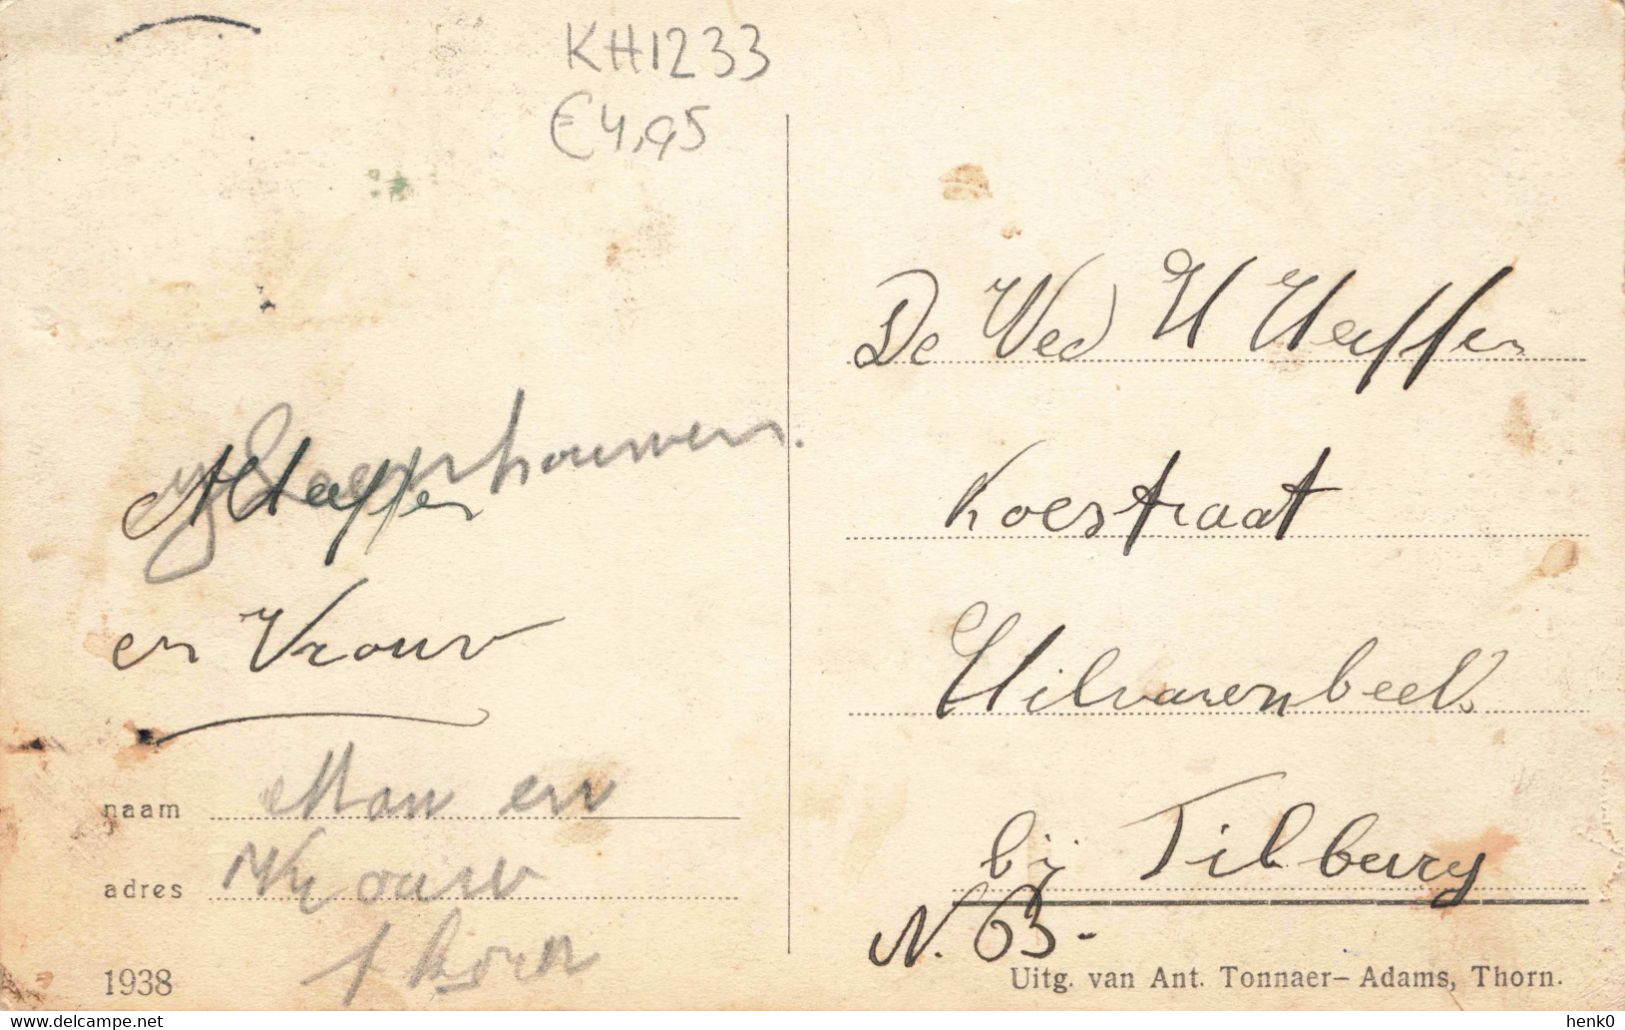 KH1233
€4,95
De Wed H Heuffen
Koestraat
Hilvarenbeek
bij Tilburg
N. 63-
en Vrouw
naam Man en
adres Vrouw
Thorn
1938
Uitg. van Ant. Tonnaer- Adams, Thorn.
www.delcampe.net
henk0